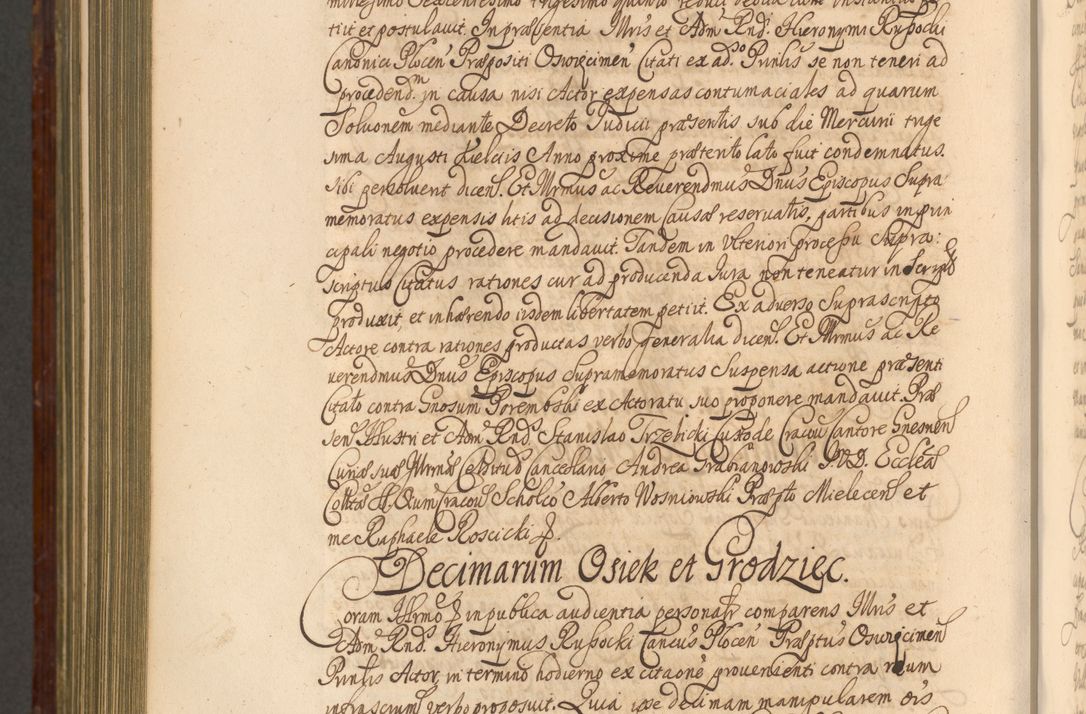 tiit et postulauit. In præsentia Illris et Adm Rnd. Hieronymi Russocki
Canonici Plocen̄ Præpositi Oswięcimen̄ Citati ex ad.o Prinlis se non teneri ad
procedend.m in causa nisi Actor expensas contumaciales ad quarum
Soluōnem mediante Decreto Iudicii præsentis sub die Mercurii trige
sima Augusti Kielciis Anno proxime præterito lato fuit condemnatus.
sibi persoluerit dicen̄. Et Illrmus ac Reverendmus Dnus Episcopus Supra
memoratus expensis litis ad decisionem Causæ reservatis, partibus in prin
cipali negotio procedere mandauit. Tandem in Vlteriori processu Supra:
scriptus Citatus rationes cur ad producenda Iura non teneatur in Scriptis
produxit, et inhærendo iisdem libertatem petiit. Ex adverso Suprascripto
Actore contra rationes productas verbo generalia dicen̄. Et Illrmus ac Re
verendmus Dnus Episcopus Supramemoratus Suspensa actione præsenti
Citato contra Gnosum Porembski ex Actoratu suo proponere mandauit. Præ
sen̄ Illustri et Adm Rnd. Stanislao Trzebicki Custode Cracoū Cantore Gnesnen̄
Curiæ suæ Illrmæ Celsitud Cancellario Andrea Grabianowski I.V.D. Ecclæ
Colltæ SS. Oium Cracoū Scholco Alberto Wosniowski Præpto Mielecen̄ et
me Raphaele Roscicki
Decimarum Osiek et Grodziec.
Coram Illrmo in publica audientia personalr comparens Illris et
Adm Rnd. Hieronymus Russocki Cancus Plocen̄ Præptus Oswięcimen̄
Prinlis Actor, in termino hodierno ex citaōne prouenienti contra reum
infrascriptum verbo proposuit. Quia ipse decimam manipularem ois